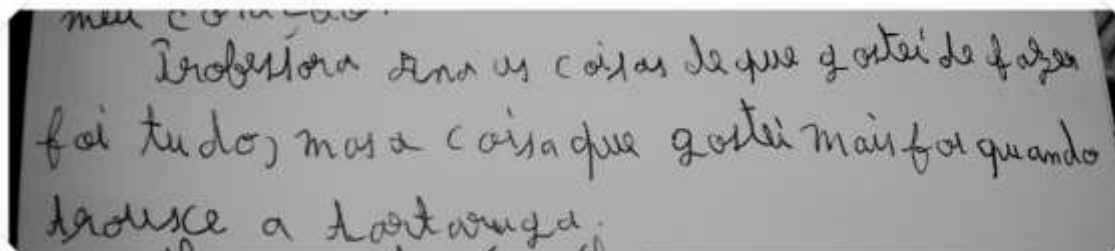 meu coração.
Professora Ana as coisas de que gostei de fazer
foi tudo, mas a coisa que gostei mais foi quando
trousce a tartaruga.